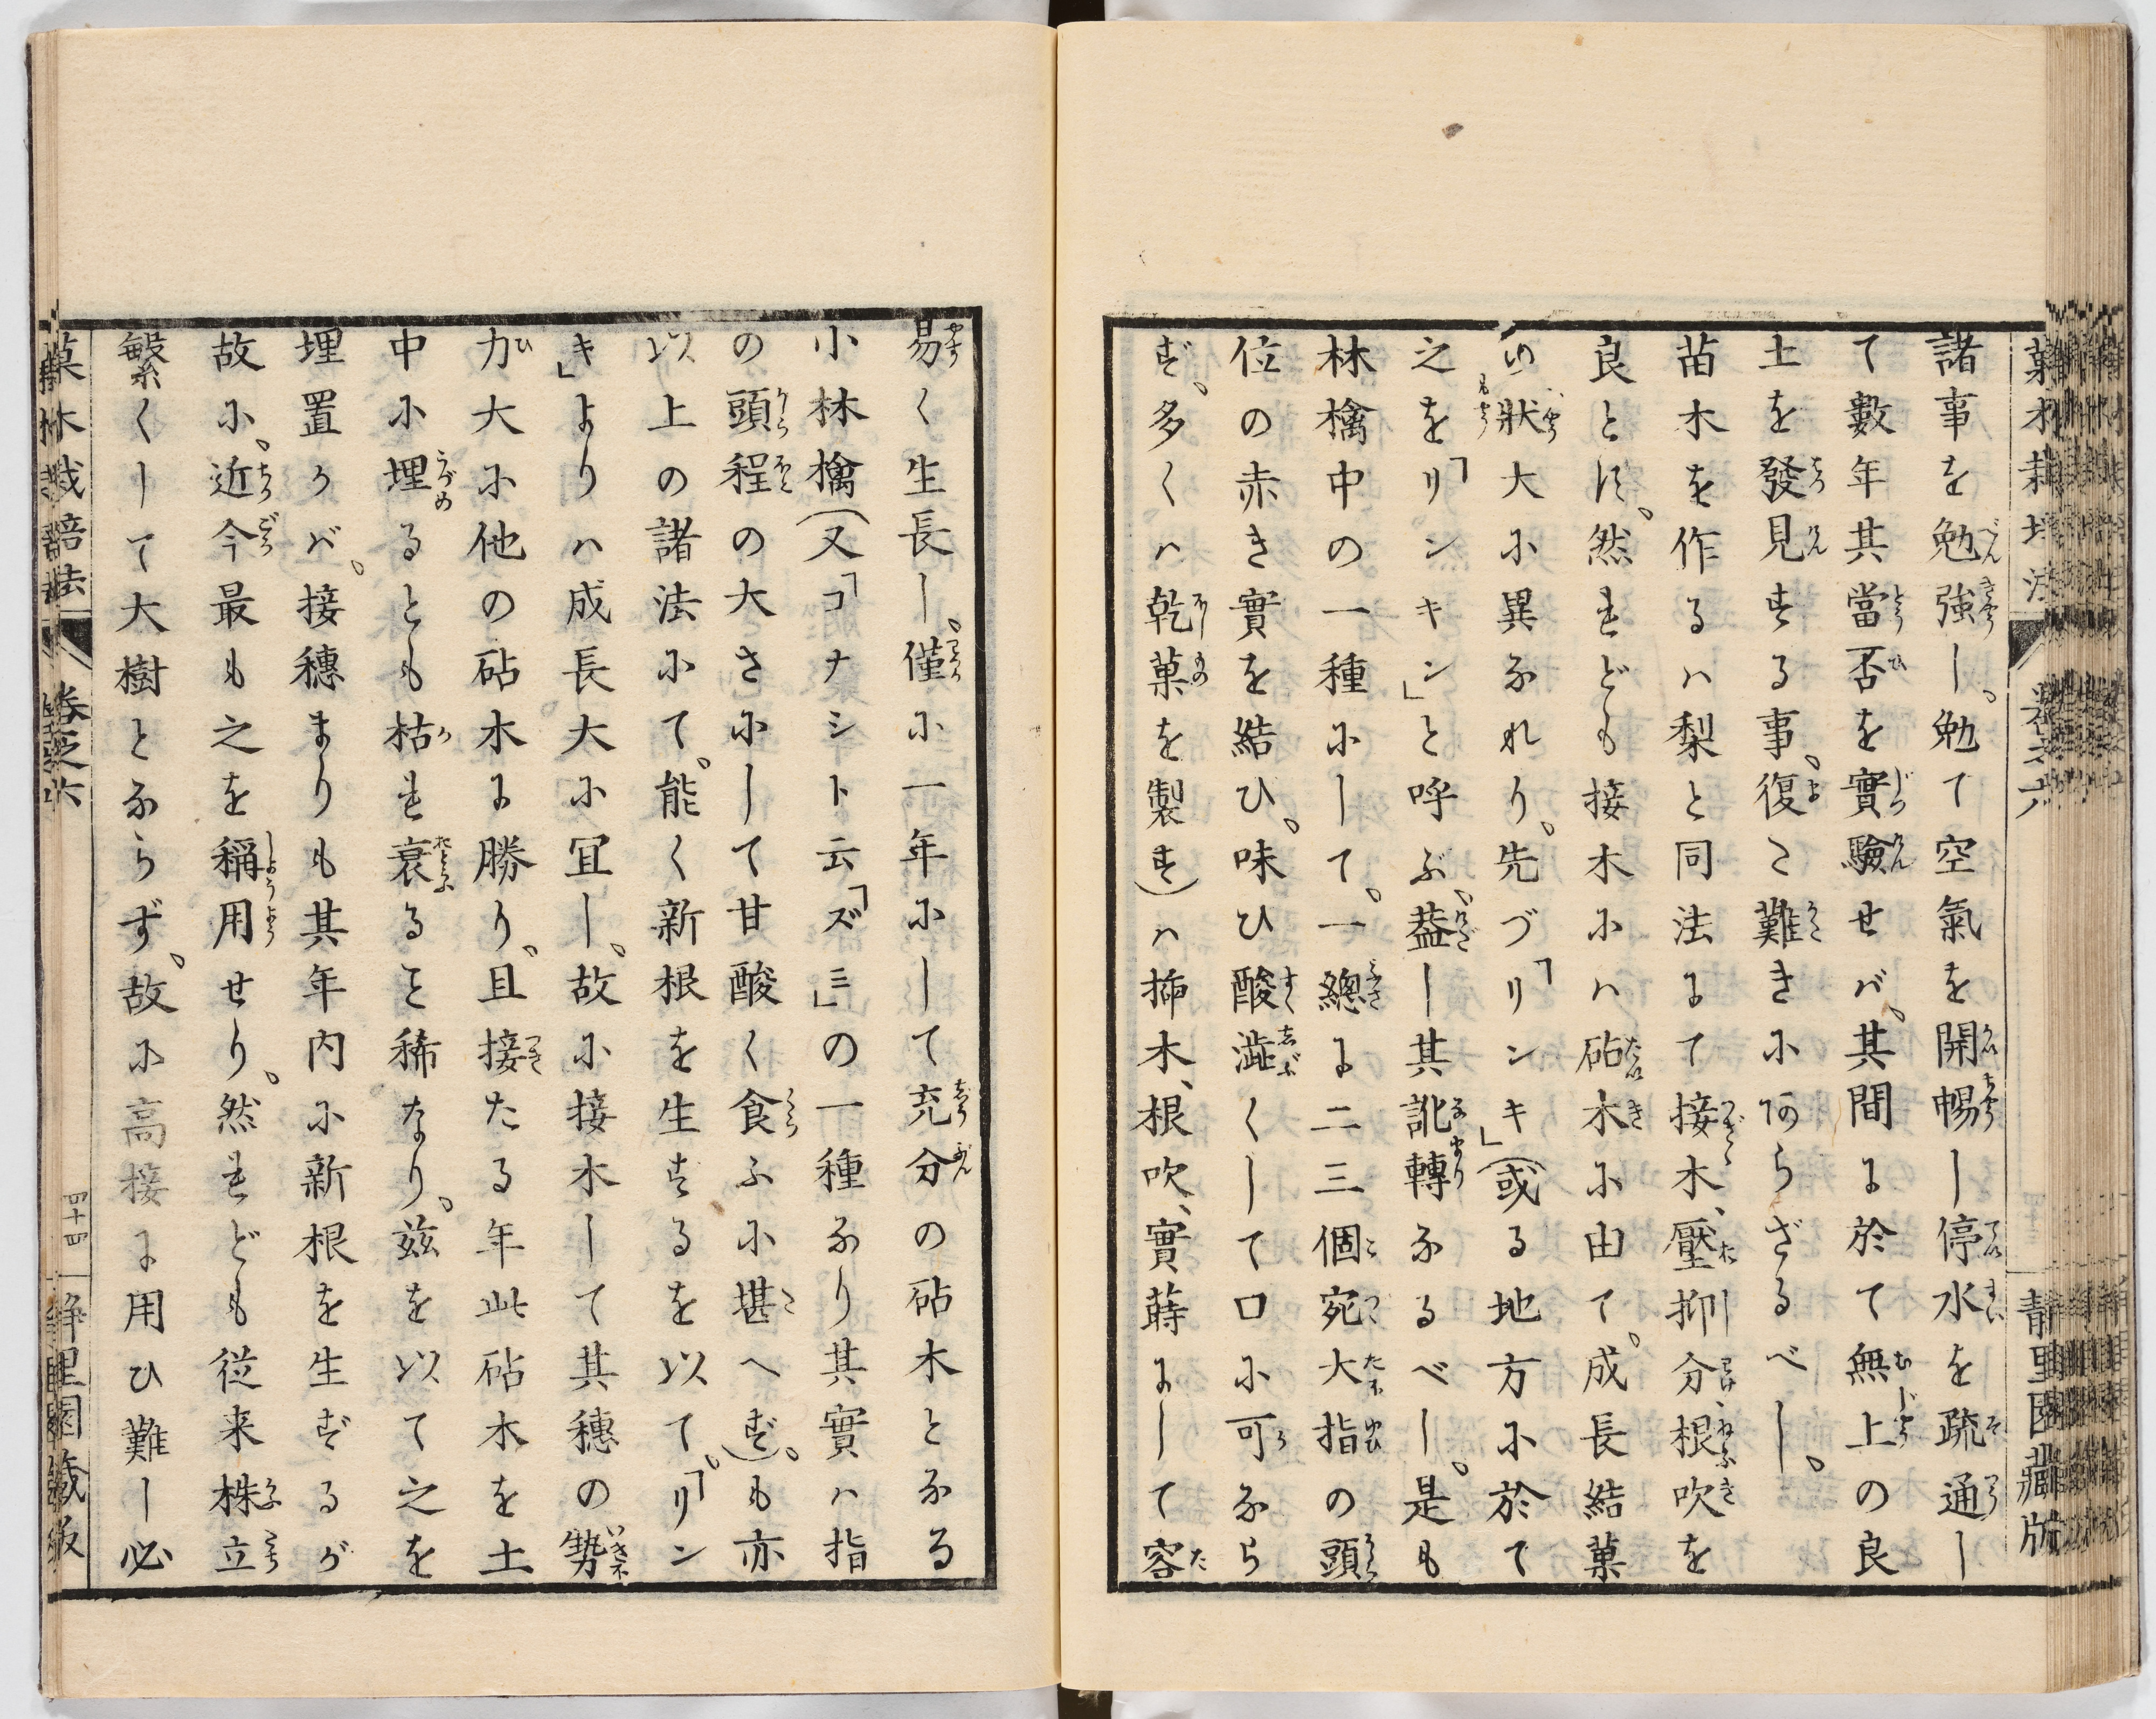 菓木栽培法 卷之六 静里園藏版
諸事を勉強し、勉て空氣を開暢し停水を疏通し
て數年其當否を實驗せバ、其間に於て無上の良
土を發見する事、復た難きにあらざるべし。
苗木を作るハ梨と同法にて接木、壓抑分、根吹を
良とす、然れども接木にハ砧木に由て、成長結菓
の狀大に異なれり、先づ「リンキ」(或る地方に於て
之を「リンキン」と呼ぶ、蓋し其訛轉なるべし、是も
林檎中の一種にして、一總に二三個宛大指の頭
位の赤き實を結ひ、味ひ酸澁くして口に可なら
ず、多くハ乾菓を製す)ハ揷木、根吹、實蒔にして容
易く生長し、僅に一年にして充分の砧木となる
小林檎(又「コナシト云「ズミ」の一種なり其實ハ指
の頭程の大さにして甘酸く食ふに堪へず)も亦
以上の諸法にて、能く新根を生ずるを以て、「リン
キ」よりハ成長大に冝し、故に接木して其穗の勢
力大に他の砧木に勝り、且接たる年此砧木を土
中に埋るとも枯れ衰ること稀なり、茲を以て之を
埋置かバ、接穗よりも其年内に新根を生ずるが
故に、近今最も之を稱用せり、然れども從来株立
繁くして大樹とならず、故に高接に用ひ難し必
菓木栽培法 卷之六 四十四 静里園藏版